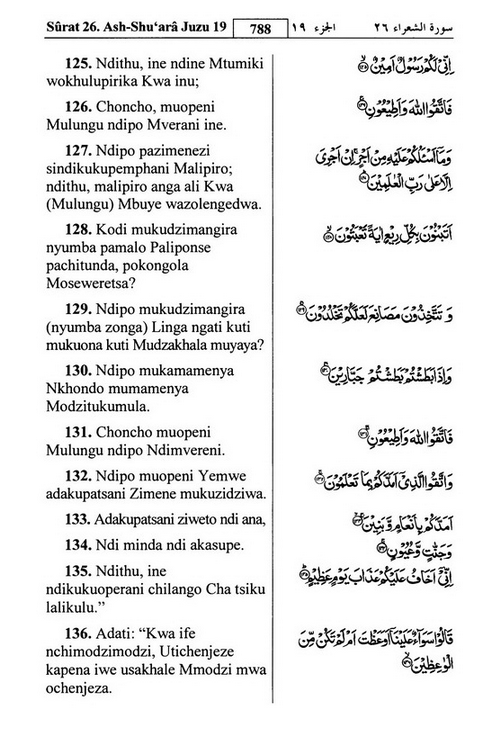 Sûrat 26. Ash-Shu‘arâ Juzu 19
788
الجزء ١٩
سورة الشعراء ٢٦
125. Ndithu, ine ndine Mtumiki
wokhulupirika Kwa inu;
إِنِّي لَكُمْ رَسُولٌ أَمِينٌ ﴿١٢٥﴾
126. Choncho, muopeni
Mulungu ndipo Mverani ine.
فَاتَّقُوا اللَّهَ وَأَطِيعُونِ ﴿١٢٦﴾
127. Ndipo pazimenezi
sindikukupemphani Malipiro;
ndithu, malipiro anga ali Kwa
(Mulungu) Mbuye wazolengedwa.
وَمَا أَسْئَلُكُمْ عَلَيْهِ مِنْ أَجْرٍ إِنْ أَجْرِيَ
إِلَّا عَلَى رَبِّ الْعَلَمِينَ ﴿١٢٧﴾
128. Kodi mukudzimangira
nyumba pamalo Paliponse
pachitunda, pokongola
Moseweretsa?
أَتَبْنُونَ بِكُلِّ رِيعٍ ءَايَةً تَعْبَثُونَ ﴿١٢٨﴾
129. Ndipo mukudzimangira
(nyumba zonga) Linga ngati kuti
mukuona kuti Mudzakhala muyaya?
وَتَتَّخِذُونَ مَصَانِعَ لَعَلَّكُمْ تَخْلُدُونَ ﴿١٢٩﴾
130. Ndipo mukamamenya
Nkhondo mumamenya
Modzitukumula.
وَإِذَا بَطَشْتُمْ بَطَشْتُمْ جَبَّارِينَ ﴿١٣٠﴾
131. Choncho muopeni
Mulungu ndipo Ndimvereni.
فَاتَّقُوا اللَّهَ وَأَطِيعُونِ ﴿١٣١﴾
132. Ndipo muopeni Yemwe
adakupatsani Zimene mukuzidziwa.
وَاتَّقُوا الَّذِي أَمَدَّكُمْ بِمَا تَعْلَمُونَ ﴿١٣٢﴾
133. Adakupatsani ziweto ndi ana,
أَمَدَّكُمْ بِأَنْعَامٍ وَبَنِينَ ﴿١٣٣﴾
134. Ndi minda ndi akasupe.
وَجَنَّتٍ وَعُيُونٍ ﴿١٣٤﴾
135. Ndithu, ine
ndikukuoperani chilango Cha tsiku
lalikulu.”
إِنِّي أَخَافُ عَلَيْكُمْ عَذَابَ يَوْمٍ عَظِيمٍ ﴿١٣٥﴾
136. Adati: “Kwa ife
nchimodzimodzi, Utichenjeze
kapena iwe usakhale Mmodzi mwa
ochenjeza.
قَالُوا سَوَاءٌ عَلَيْنَا أَوَعَظْتَ أَمْ لَمْ تَكُنْ مِنَ
الْوَاعِظِينَ ﴿١٣٦﴾